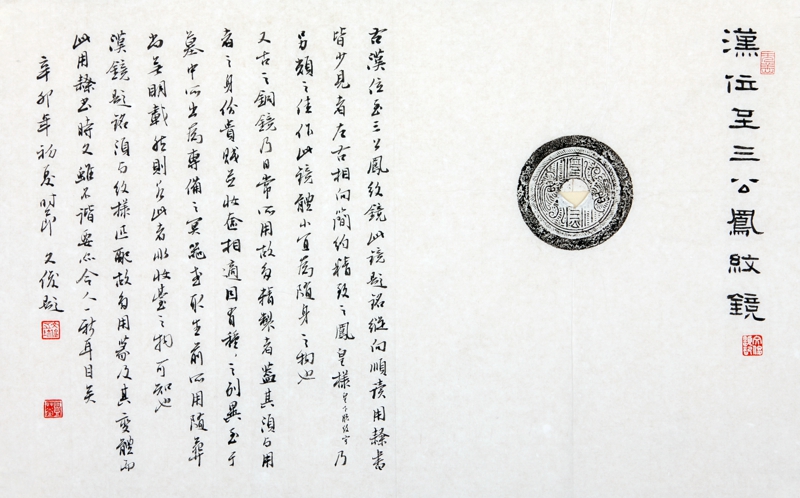 漢位至三公鳳紋鏡
右漢位至三公鳳紋鏡此鏡題銘縱向順讀用隸書
皆少見者左右相向簡約精致之鳳皇樣皇下脱紋字乃
另類之佳作此鏡體小宜為随身之物也
又古之銅鏡乃日常所用故多精製者蓋其須与用
者之身份貴賤並妝奩相適因有種之列異至于
墓中所出為專備之冥器或取生前所用随葬
尚無明載然則如此者作妝臺之物可知也
漢鏡題銘須与紋樣匹配故多用篆及其變體而
此用隸書時人雖不諧要亦令人一新耳目矣
辛卯年初夏時節 文俊題